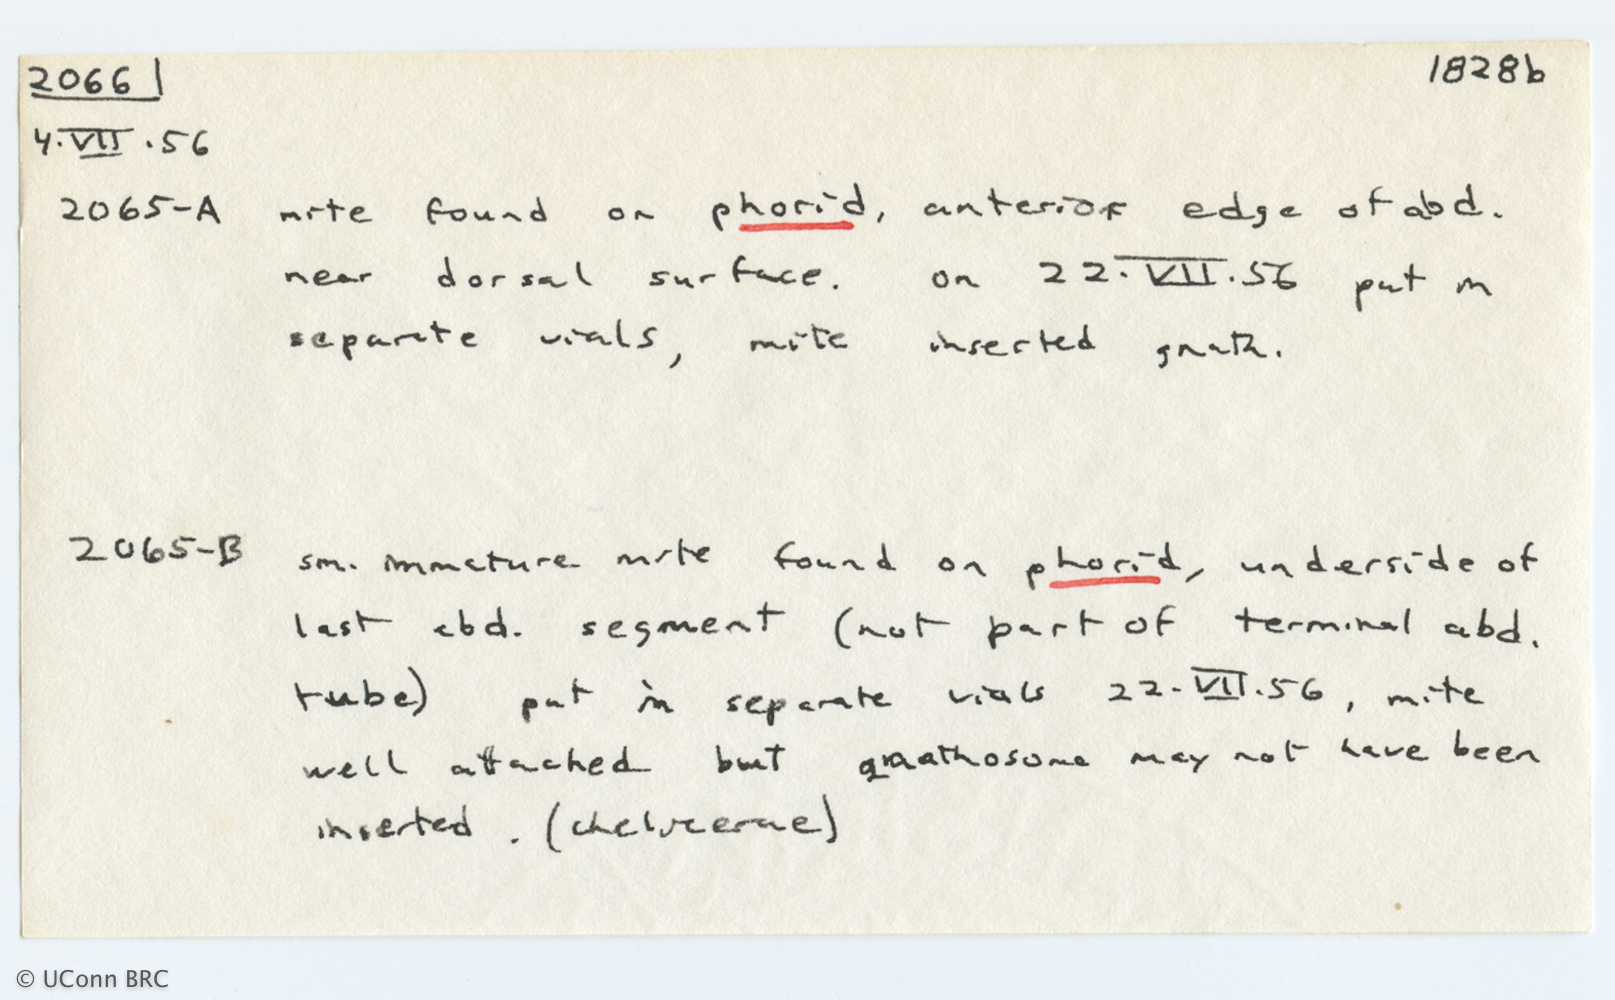 2066 1828b
4.VII.56
2065-A mite found on phorid, anterior edge of abd.
near dorsal surface. on 22.VII.56 put in
separate vials, mite inserted gnath.
2065-B sm. immature mite found on phorid, underside of
last abd. segment (not part of terminal abd.
tube) put in separate vials 22.VII.56, mite
well attached but gnathosoma may not have been
inserted. (chelicerae)
© UConn BRC